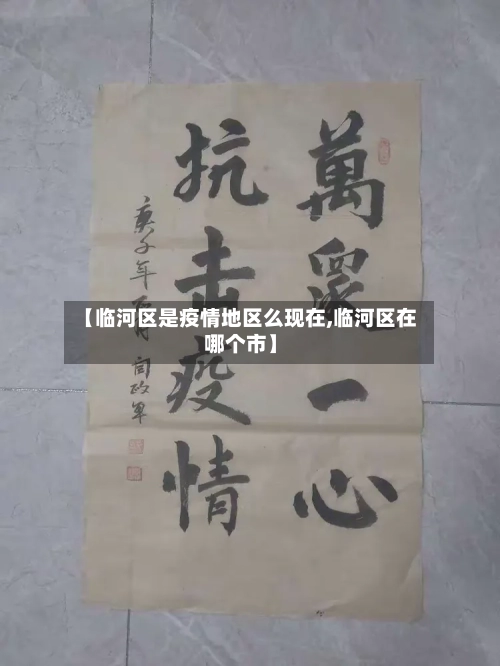 萬眾一心
抗击疫情
庚子年
闫政军
【临河区是疫情地区么现在,临河区在
哪个市】